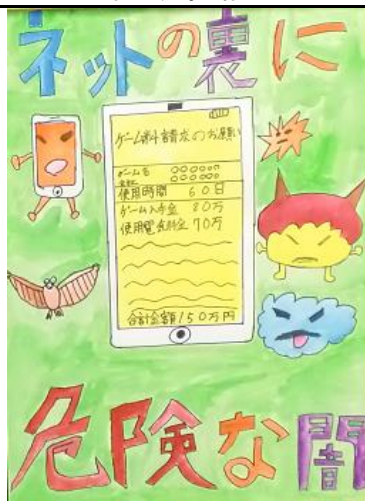 ネットの裏に
ゲーム料請求のお願い
ゲーム名 ○○○○○○
○○○○○○
使用時間 60日
ゲーム入手金 80万
70万
合計金額150万円
危険な闇